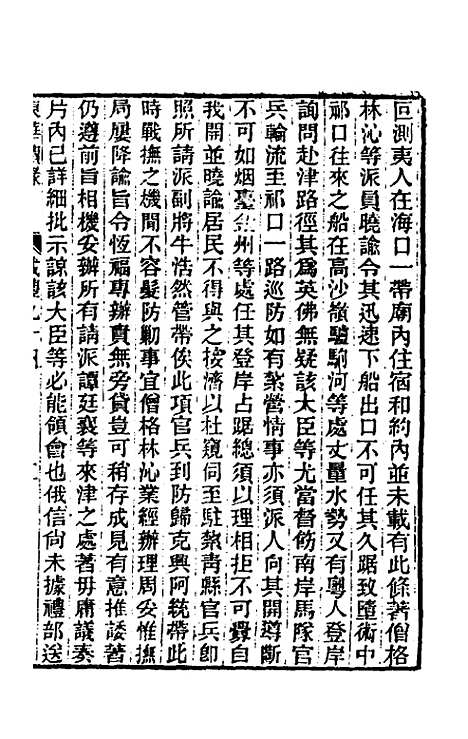 叵測夷人在海口一帶廟內住宿和約內並未載有此條著僧格
林沁等派員曉諭令其迅速下船出口不可任其久踞致墮術中
祁口往來之船在高沙嶺驢駒河等處丈量水勢又有粵人登岸
詢問赴津路徑其爲英佛無疑該大臣等尤當督飭南岸馬隊官
兵輪流至祁口一路巡防如有紮營情事亦須派人向其開導斷
不可如烟臺金州等處任其登岸占踞總須以理相拒不可釁自
我開並曉諭居民不得與之接濟以杜窺伺至駐紮靑縣官兵卽
照所請派副將牛浩然管帶俟此項官兵到防歸克興阿統帶此
時戰撫之機間不容髮防勦事宜僧格林沁業經辦理周妥惟撫
局屢降諭旨令恆福專辦責無旁貸豈可稍存成見有意推諉著
仍遵前旨相機妥辦所有請派譚廷襄等來津之處著毋庸議奏
片內已詳細批示諒該大臣等必能領會也俄信尙未據禮部送
東華續錄 咸豐九十四